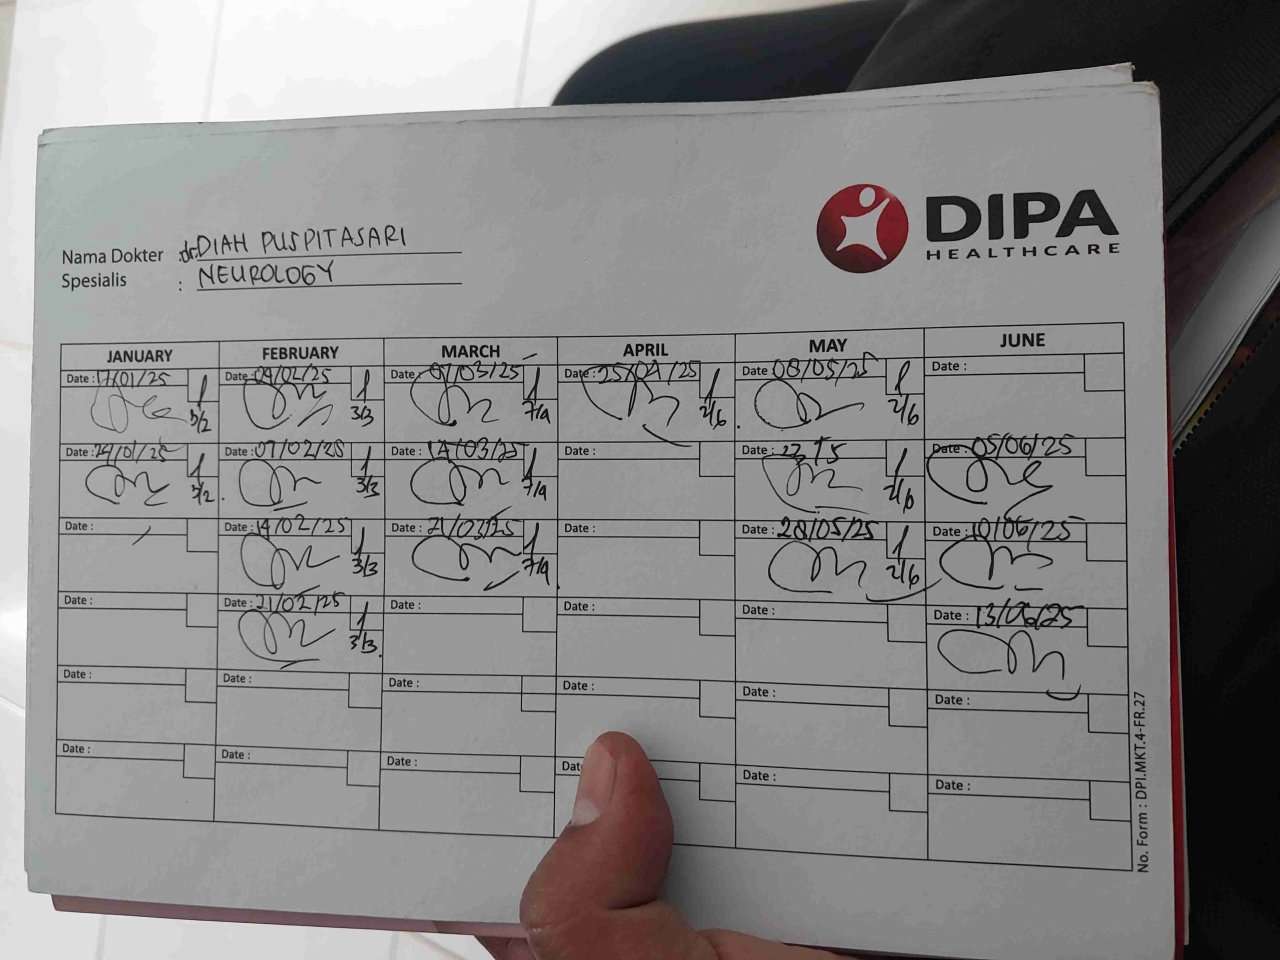 DIPA
HEALTHCARE
Nama Dokter : dr. DIAH PUSPITASARI
Spesialis : NEUROLOGY
JANUARY FEBRUARY MARCH APRIL MAY JUNE
Date : 17/01/25 Date : 04/02/25 Date : 07/03/25 Date : 25/04/25 Date : 08/05/25 Date :
3/2 3/3 7/4 2/6 2/6
Date : 24/01/25 Date : 07/02/25 Date : 14/03/25 Date : Date : Date : 05/06/25
3/2 3/3 7/4 2/6
Date : Date : 14/02/25 Date : 21/03/25 Date : Date : 28/05/25 Date : 10/06/25
3/3 7/4 2/6
Date : Date : 21/02/25 Date : Date : Date : Date : 13/06/25
3/3
Date : Date : Date : Date : Date : Date :
Date : Date : Date : Date Date : Date :
No. Form : DPI.MKT.4-FR.27